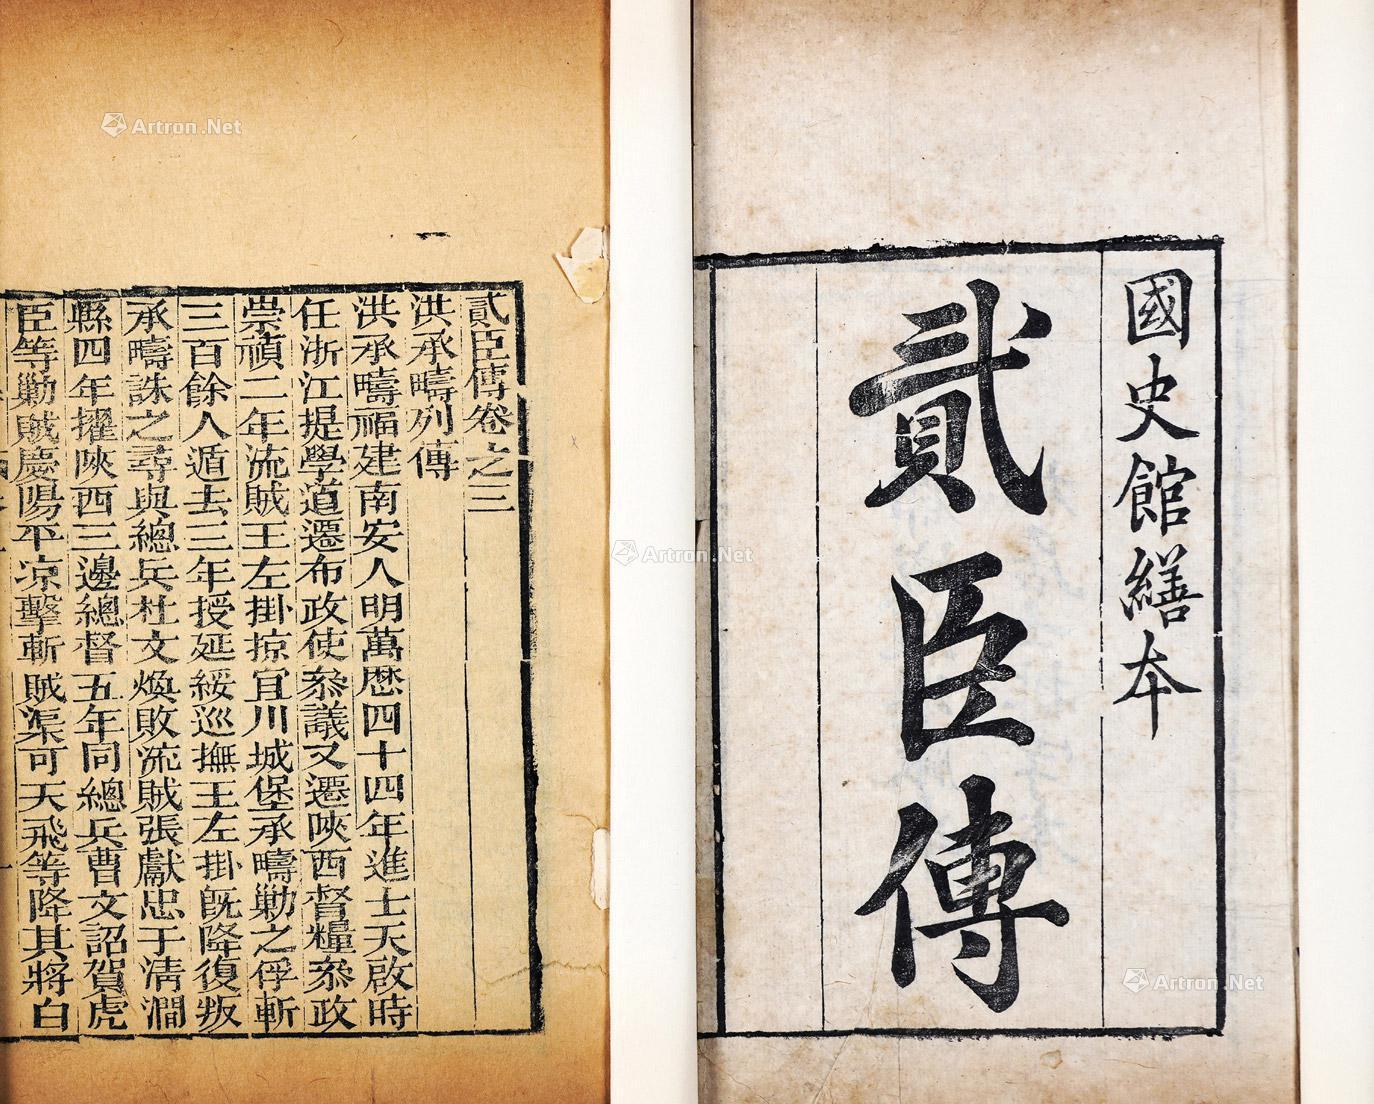 國史館繕本
貳臣傳
貳臣傳卷之三
洪承疇列傳
洪承疇福建南安人明萬歷四十四年進士天啟時
任浙江提學道遷布政使叅議又遷陝西督糧叅政
崇禎二年流賊王左掛掠宜川城堡承疇勦之俘斬
三百餘人遁去三年授延綏巡撫王左掛既降復叛
承疇誅之尋與總兵杜文煥敗流賊張獻忠于清澗
縣四年擢陝西三邊總督五年同總兵曹文詔賀虎
臣等勦賊慶陽平凉擊斬賊渠可天飛等降其將白
Artron.Net
Artron.Net
Artron.Net